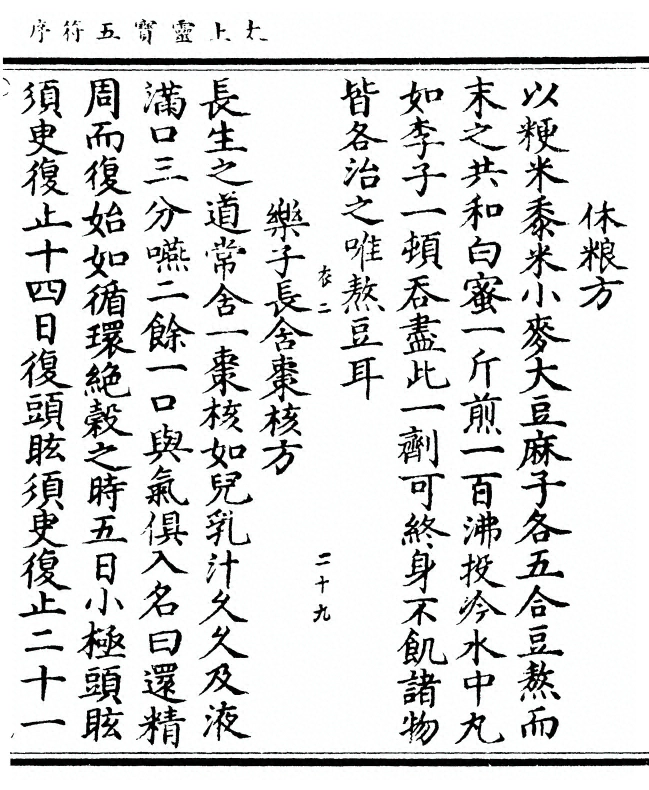 太上靈寶五符序
休粮方
以粳米黍米小麥大豆麻子各五合豆熬而
末之共和白蜜一斤煎一百沸投冷水中丸
如李子一頓吞盡此一劑可終身不飢諸物
皆各治之唯熬豆耳
衣二
二十九
樂子長含棗核方
長生之道常含一棗核如兒乳汁久久及液
滿口三分嚥二餘一口與氣俱入名曰還精
周而復始如循環絶穀之時五日小極頭眩
須臾復止十四日復頭眩須臾復止二十一